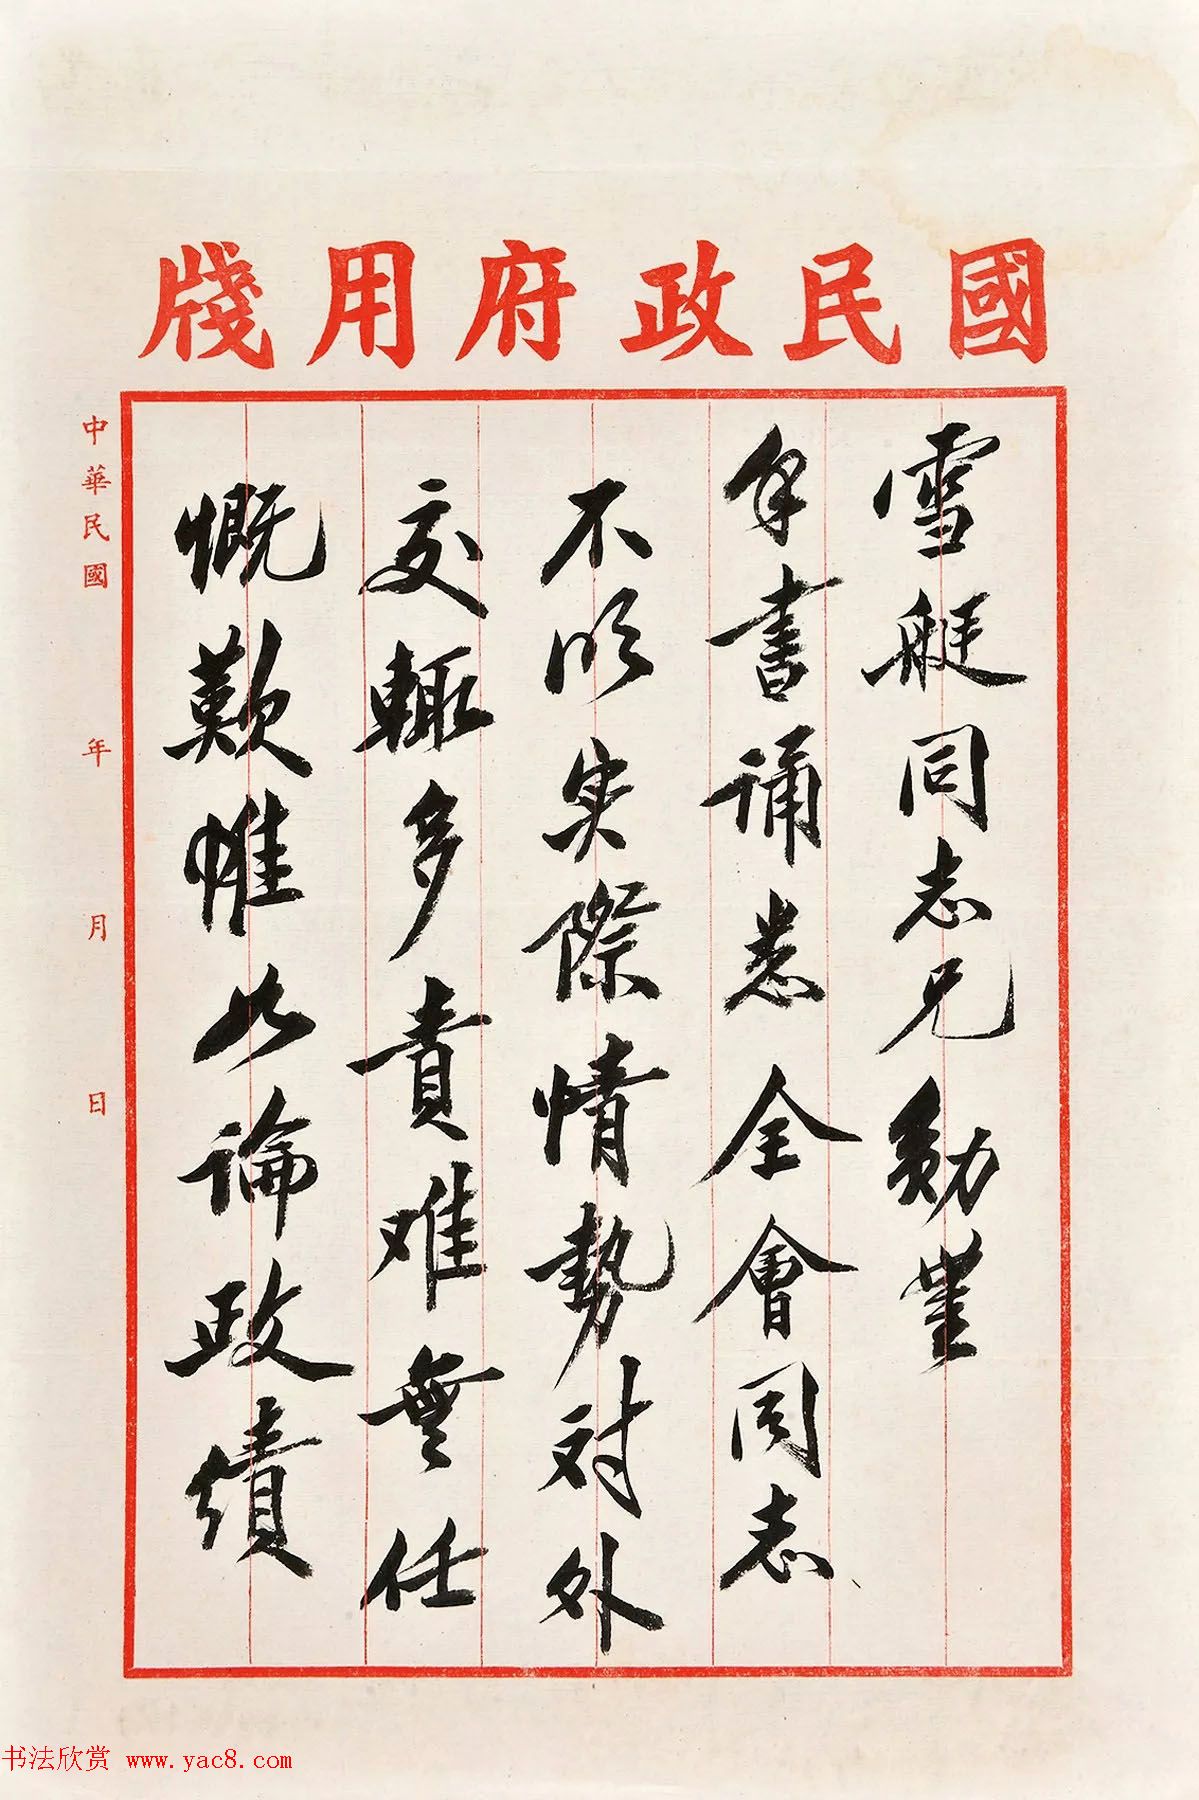 國民政府用牋
雪艇同志兄勛鑒
手書誦悉全會同志
不明实際情勢对外
交輒多責难無任
慨歎惟如論政績
中華民國 年 月 日
书法欣赏 www.yac8.com